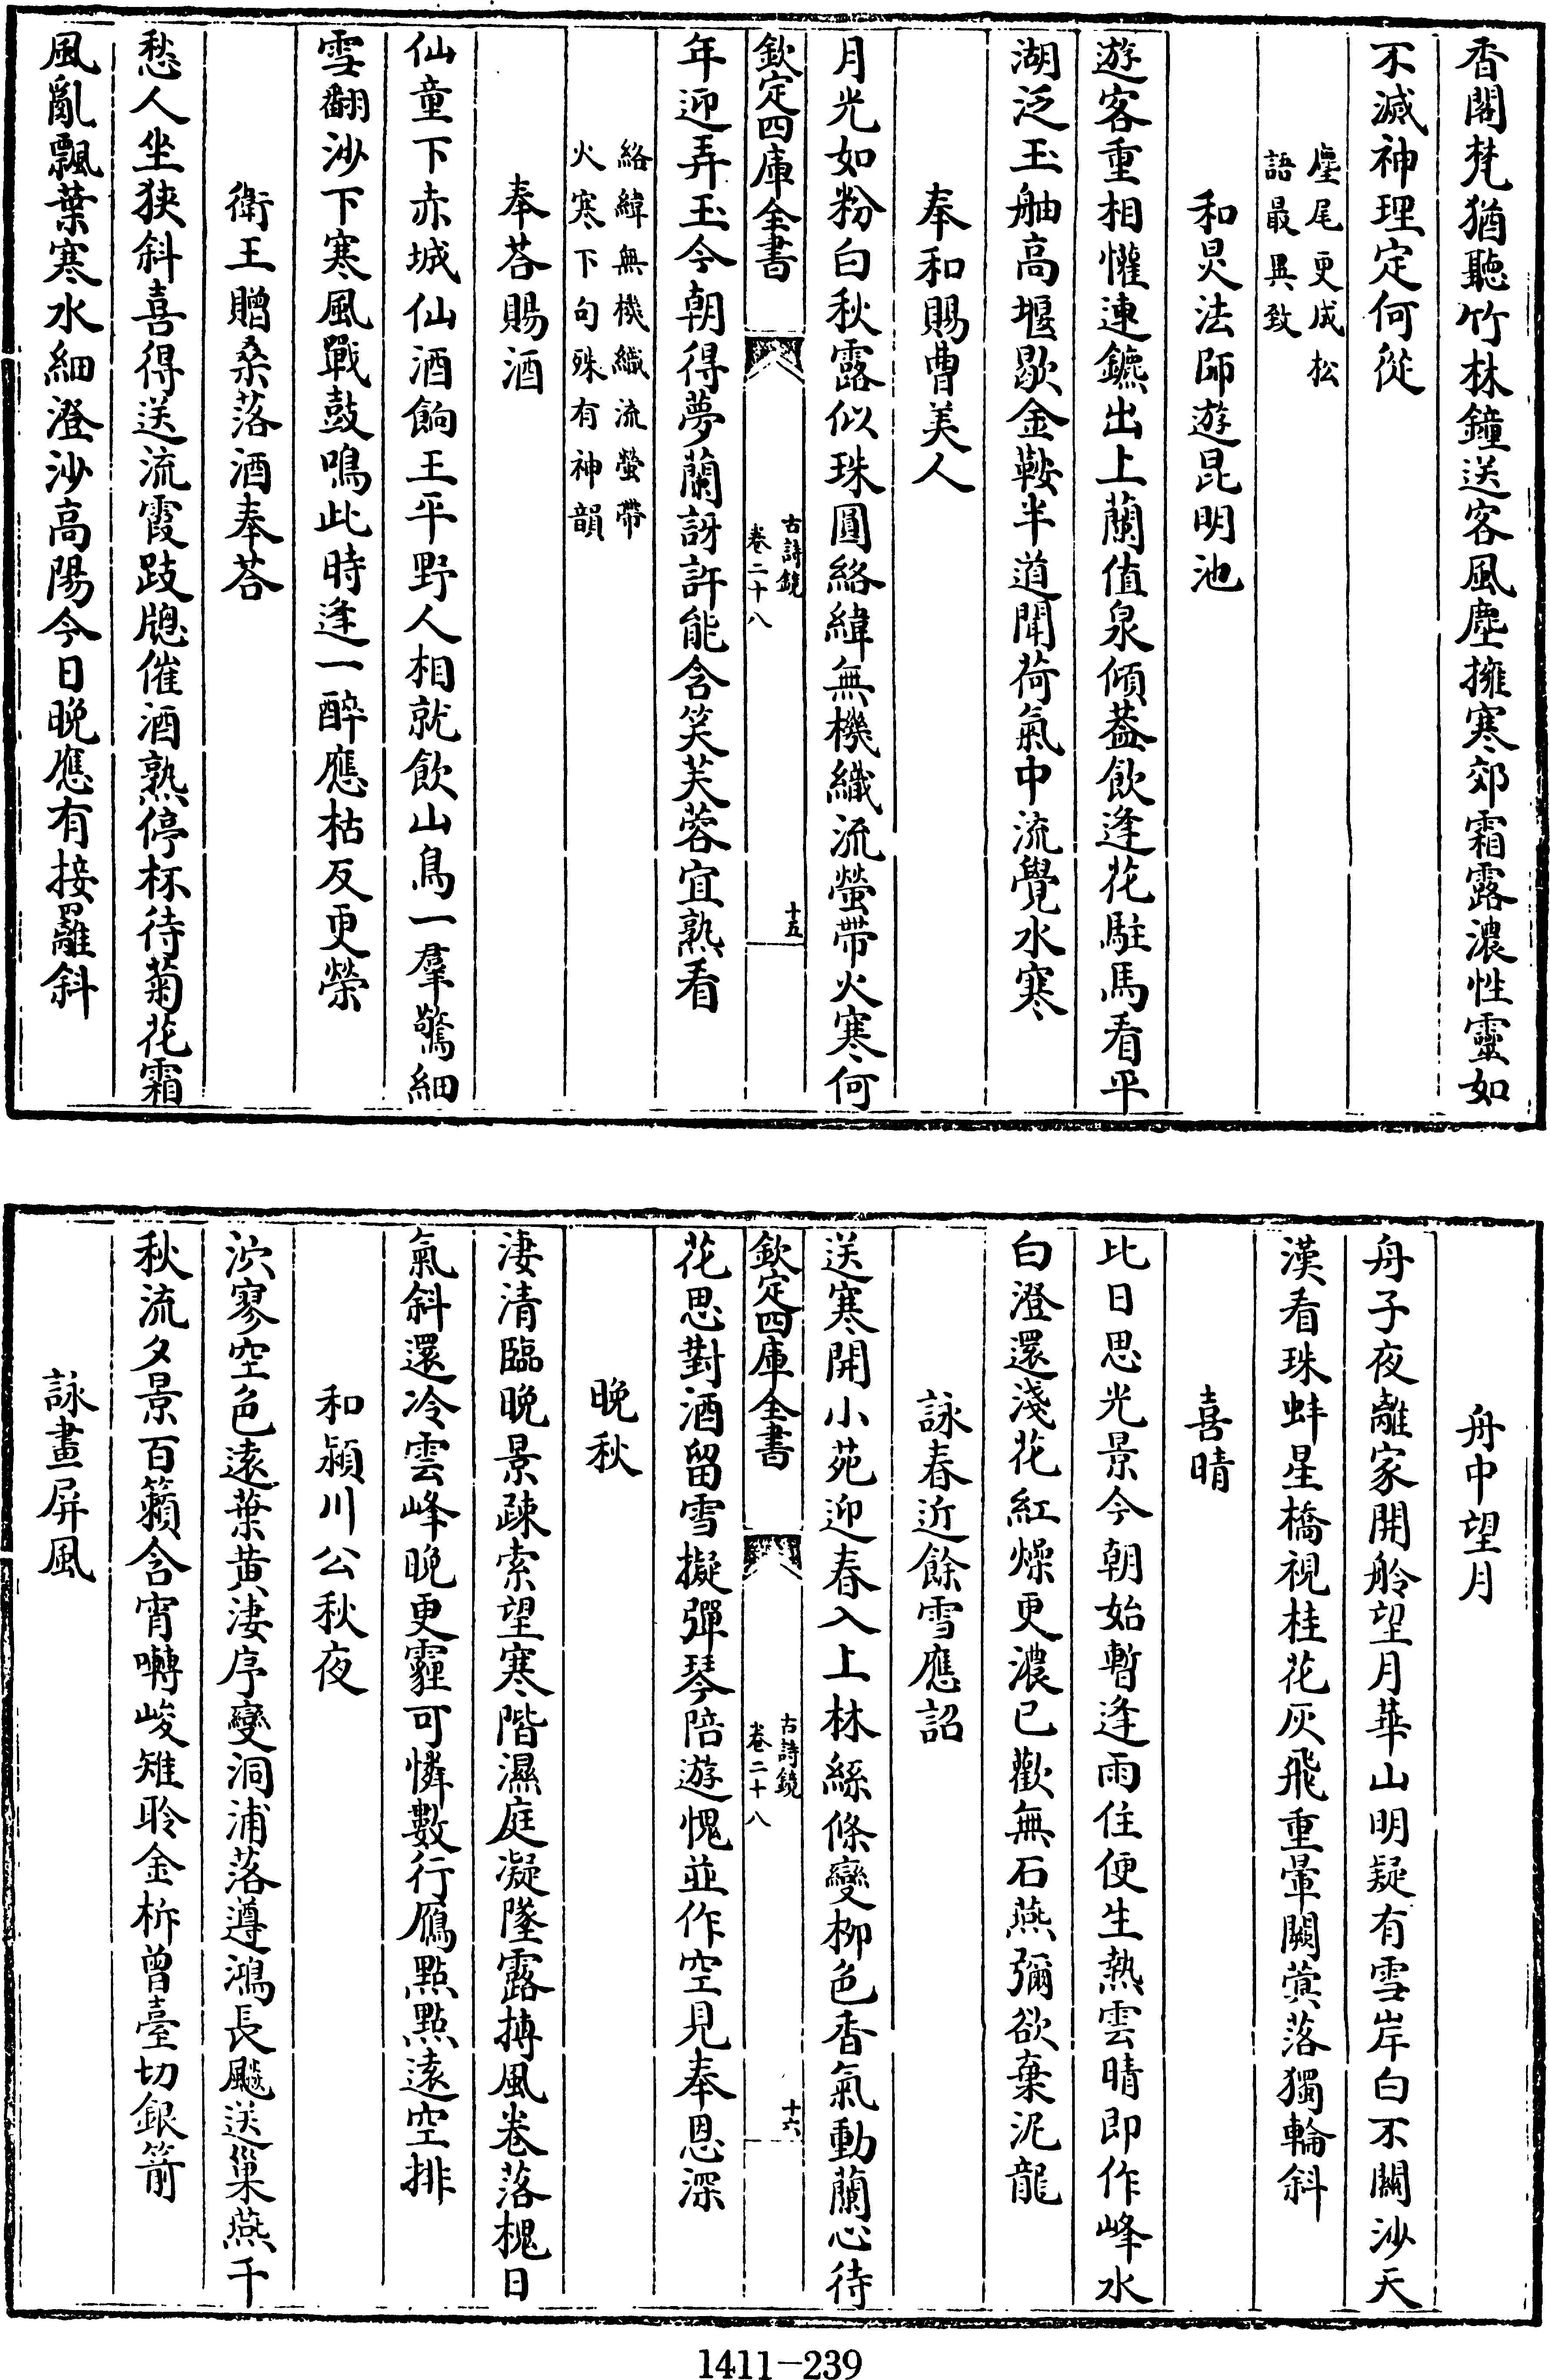 香閣梵猶聽竹林鐘送客風塵擁寒郊霜露濃性靈如
不滅神理定何從
麈尾更成松
語最異致
和炅法師遊昆明池
遊客重相懽連鑣出上蘭值泉傾葢飲逢花駐馬看平
湖泛玉舳高堰歇金鞍半道聞荷氣中流覺水寒
奉和賜曹美人
月光如粉白秋露似珠圓絡緯無機織流螢帶火寒何
欽定四庫全書
古詩鏡
卷二十八
十五
年迎弄玉今朝得夢蘭訝許能含笑芙蓉宜熟看
絡緯無機織流螢帶
火寒下句殊有神韻
奉荅賜酒
仙童下赤城仙酒餉王平野人相就飲山鳥一羣驚細
雪翻沙下寒風戰鼓鳴此時逢一醉應枯反更榮
衛王贈桑落酒奉荅
愁人坐狹斜喜得送流霞跂牕催酒熟停杯待菊花霜
風亂飄葉寒水細澄沙高陽今日晚應有接䍦斜
舟中望月
舟子夜離家開舲望月華山明疑有雪岸白不關沙天
漢看珠蚌星橋視桂花灰飛重暈闕蓂落獨輪斜
喜晴
比日思光景今朝始暫逢雨住便生熱雲晴即作峰水
白澄還淺花紅燥更濃已歡無石燕彌欲棄泥龍
詠春近餘雪應詔
送寒開小苑迎春入上林絲條變柳色香氣動蘭心待
欽定四庫全書
古詩鏡
卷二十八
十六
花思對酒留雪擬彈琴陪遊愧並作空見奉恩深
晚秋
淒清臨晚景疎索望寒階濕庭凝墜露摶風卷落槐日
氣斜還冷雲峰晚更霾可憐數行鴈點點遠空排
和潁川公秋夜
泬寥空色遠葉黃淒序變洞浦落遵鴻長飈送巢燕千
秋流夕景百籟含宵囀峻雉聆金柝曾臺切銀箭
詠畫屏風
1411-239